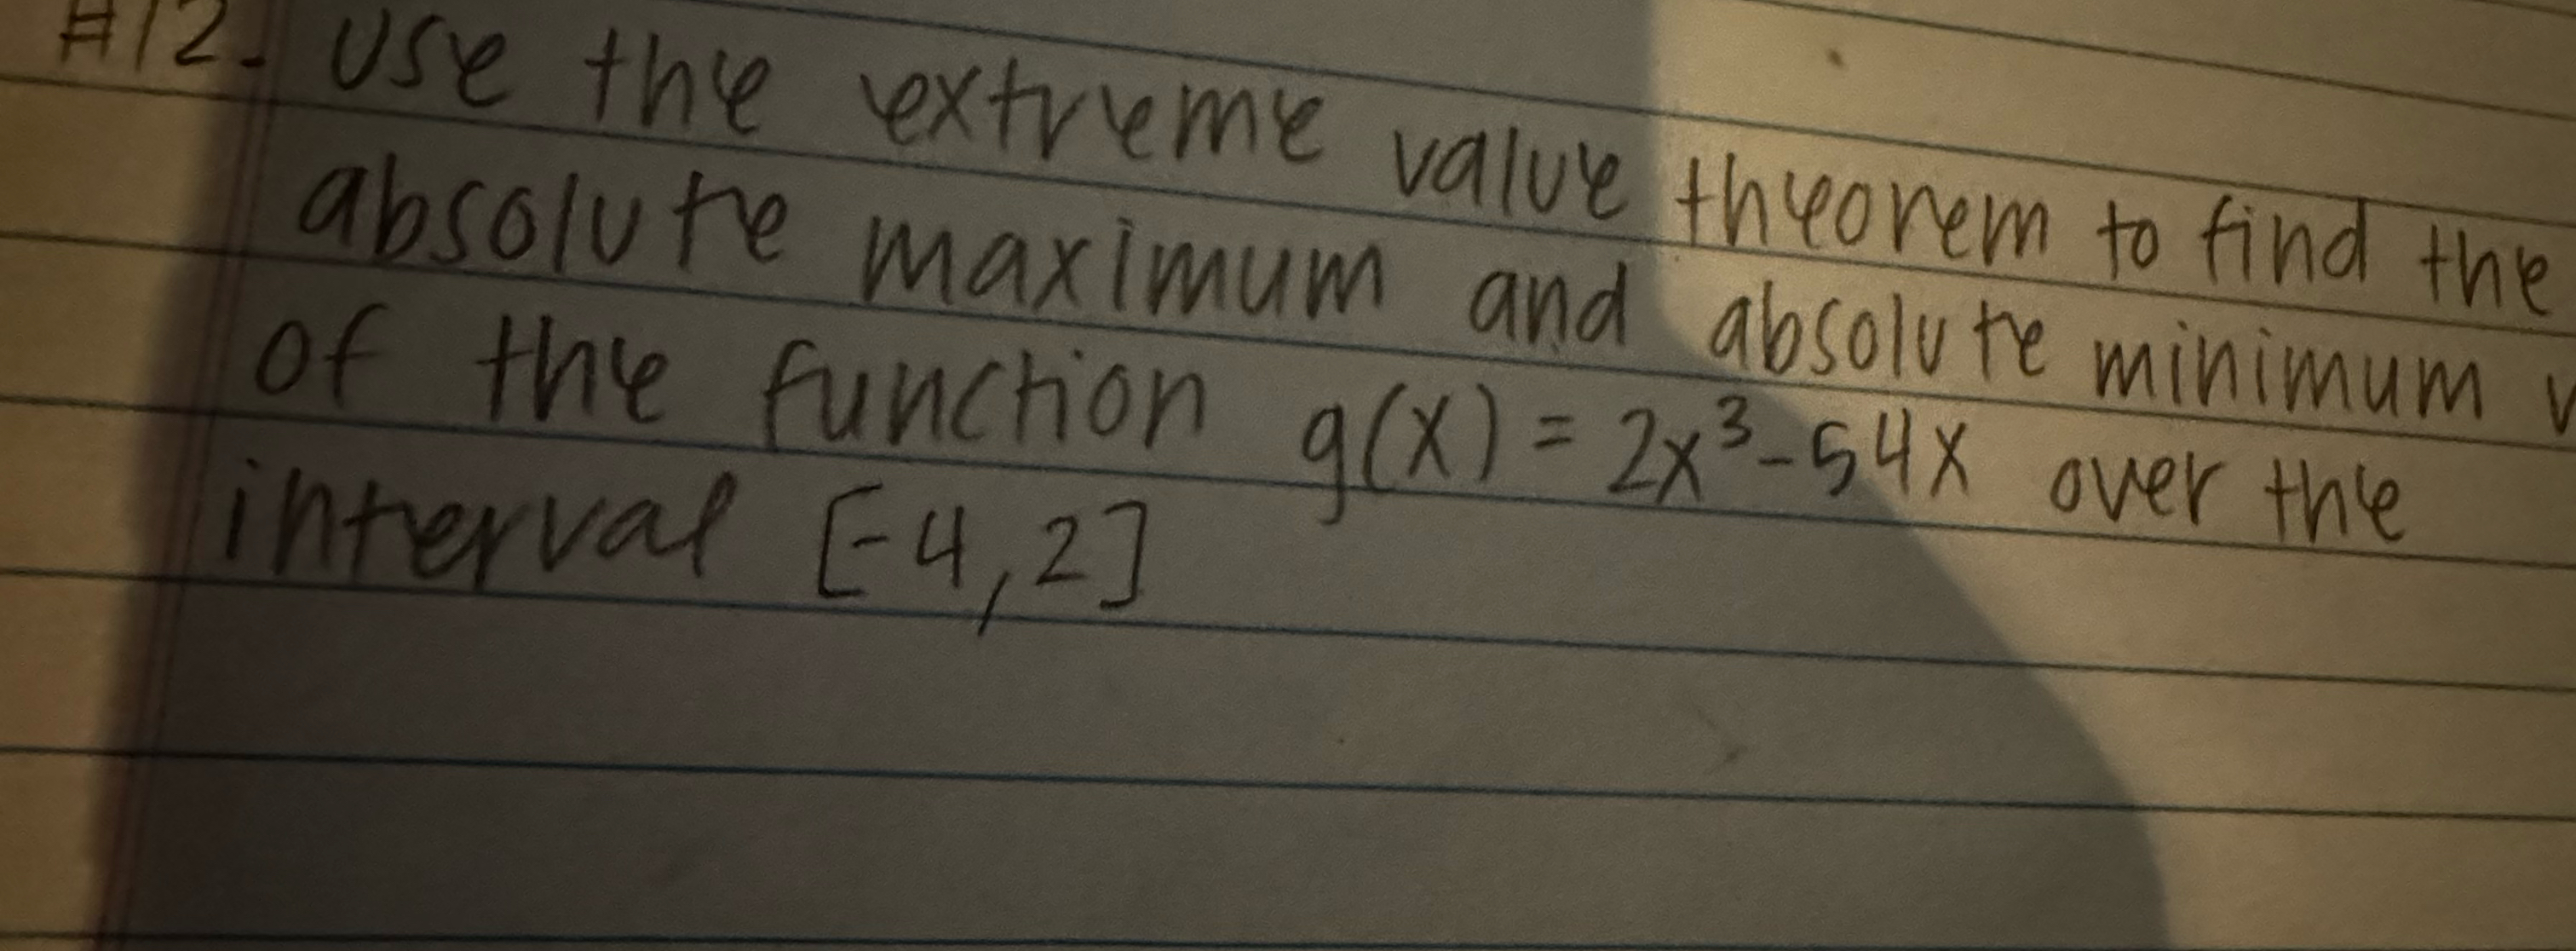 #12. Use the extreme value theorem to find the
absolute maximum and absolute minimum
of the function g(x) = 2x³-54x over the
interval [-4,2]